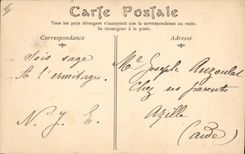 Carte Postale
Tous les pays étrangers n'acceptent pas la correspondance au recto.
Se renseigner à la poste.
Correspondance
Adresse
Sois sage
A l'ermitage.
N. J. E.
Mlle Joseph
Chez ses parents
Azille
(Aude)